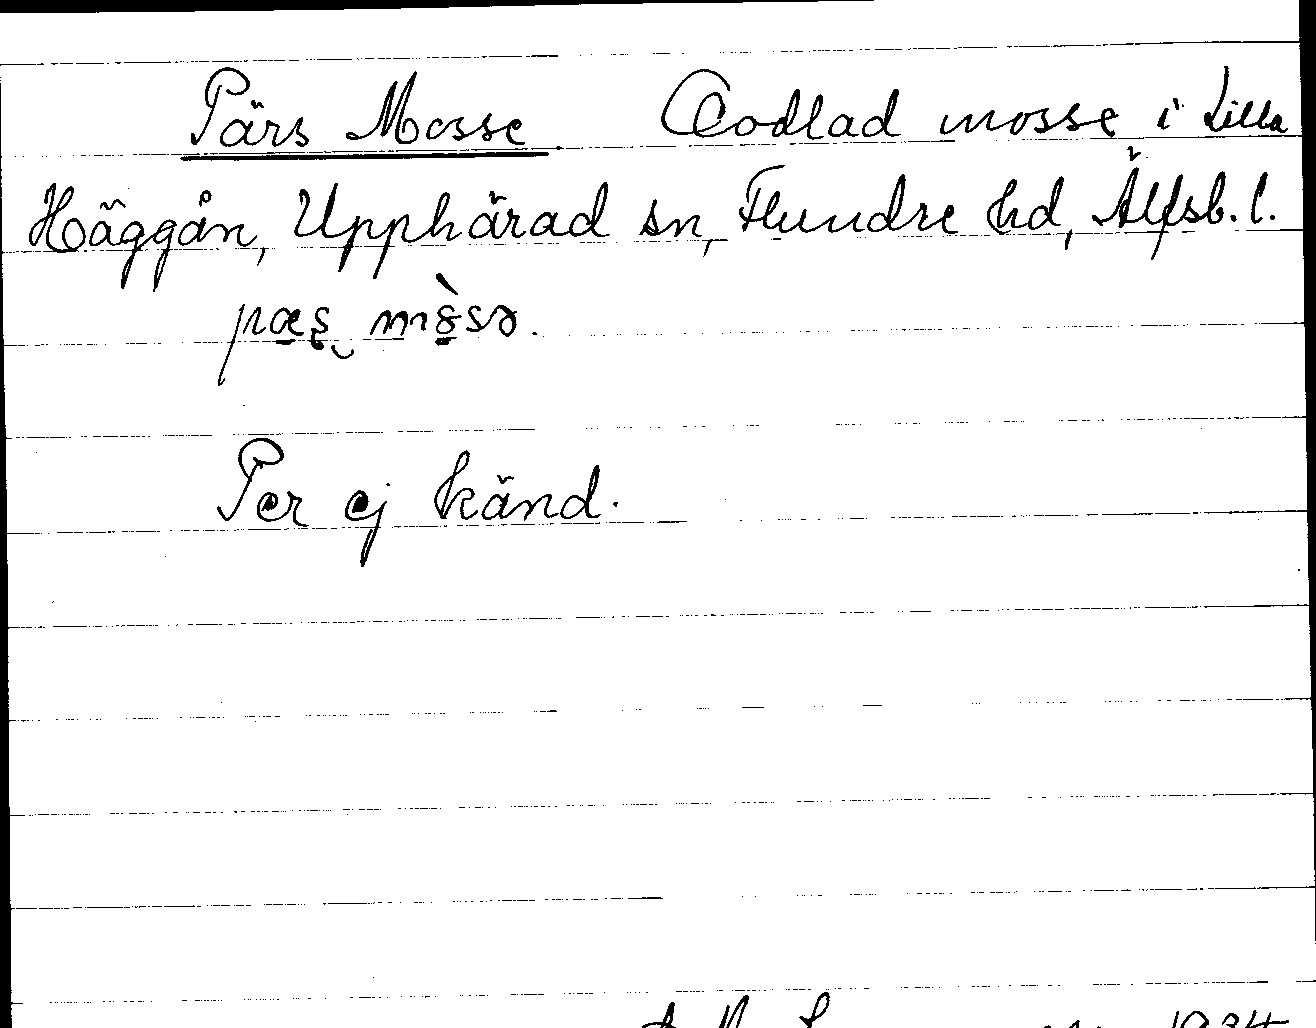 Pärs Mosse. Oodlad mosse i Lilla
Häggån, Upphärad sn, Flundre hd, Älfsb. l.
Per ej känd.